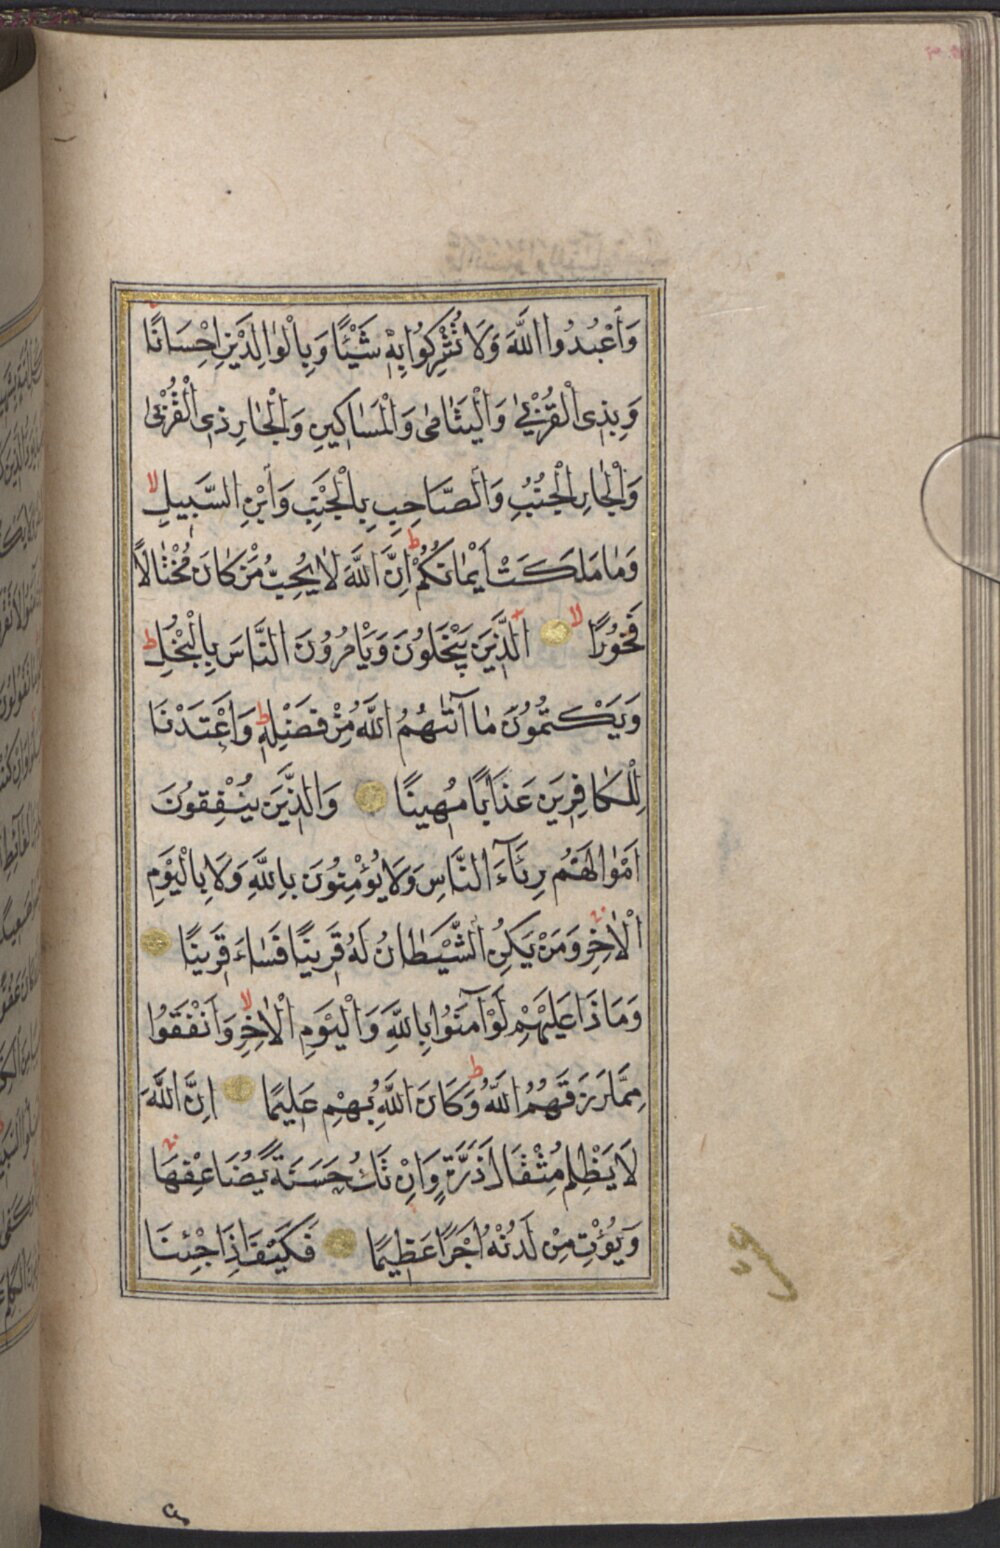 وَاعْبُدُوا اللَّهَ وَلَا تُشْرِكُوا بِهِ شَيْئًا وَبِالْوَالِدَيْنِ اِحْسَانًا
وَبِذِي الْقُرْبٰى وَالْيَتَامٰى وَالْمَسَاكِينِ وَالْجَارِ ذِي الْقُرْبٰى
وَالْجَارِ الْجُنُبِ وَالصَّاحِبِ بِالْجَنْبِ وَابْنِ السَّبِيلِ
وَمَا مَلَكَتْ اَيْمَانُكُمْ اِنَّ اللَّهَ لَا يُحِبُّ مَنْ كَانَ مُخْتَالًا
فَخُورًا اَلَّذِينَ يَبْخَلُونَ وَيَأْمُرُونَ النَّاسَ بِالْبُخْلِ
وَيَكْتُمُونَ مَا آتٰيهُمُ اللَّهُ مِنْ فَضْلِهِ وَاَعْتَدْنَا
لِلْكَافِرِينَ عَذَابًا مُهِينًا وَالَّذِينَ يُنْفِقُونَ
اَمْوَالَهُمْ رِئَاءَ النَّاسِ وَلَا يُؤْمِنُونَ بِاللَّهِ وَلَا بِالْيَوْمِ
الْاٰخِرِ وَمَنْ يَكُنِ الشَّيْطَانُ لَهُ قَرِينًا فَسَاءَ قَرِينًا
وَمَاذَا عَلَيْهِمْ لَوْ آمَنُوا بِاللَّهِ وَالْيَوْمِ الْاٰخِرِ وَاَنْفَقُوا
مِمَّا رَزَقَهُمُ اللَّهُ وَكَانَ اللَّهُ بِهِمْ عَلِيمًا اِنَّ اللَّهَ
لَا يَظْلِمُ مِثْقَالَ ذَرَّةٍ وَاِنْ تَكُ حَسَنَةً يُضَاعِفْهَا
وَيُؤْتِ مِنْ لَدُنْهُ اَجْرًا عَظِيمًا فَكَيْفَ اِذَا جِئْنَا